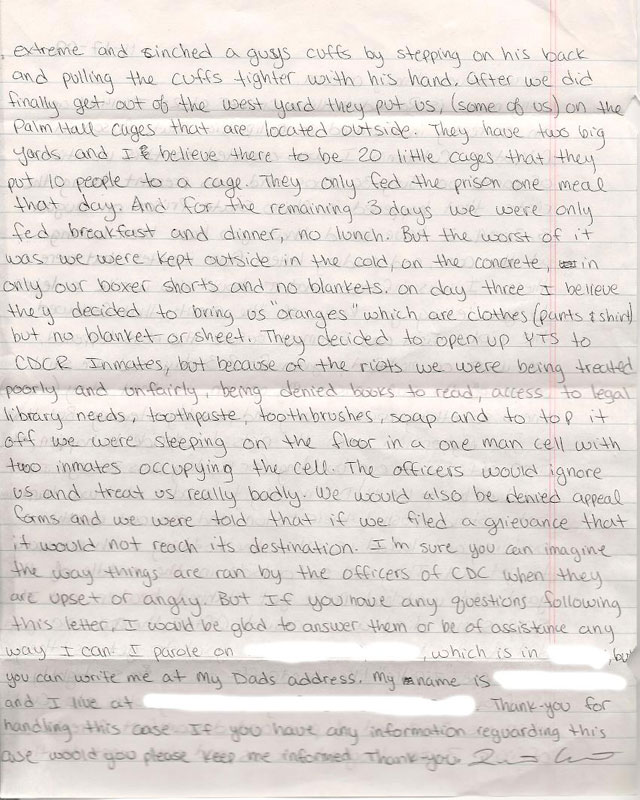 extreme and sinched a guys cuffs by stepping on his back
and pulling the cuffs tighter with his hand. After we did
finally get out of the west yard they put us, (some of us) on the
Palm Hall cages that are located outside. They have two big
yards and I believe there to be 20 little cages that they
put 10 people to a cage. They only fed the prison one meal
that day. And for the remaining 3 days we were only
fed breakfast and dinner, no lunch. But the worst of it
was we were kept outside in the cold, on the concrete, in
only our boxer shorts and no blankets. on day three I believe
they decided to bring us "oranges" which are clothes (pants & shirt)
but no blanket or sheet. They decided to open up YTS to
CDCR Inmates, but because of the riots we were being treated
poorly and unfairly, being denied books to read, access to legal
library needs, toothpaste, toothbrushes, soap and to top it
off we were sleeping on the floor in a one man cell with
two inmates occupying the cell. The officers would ignore
us and treat us really badly. We would also be denied appeal
forms and we were told that if we filed a grievance that
it would not reach its destination. I'm sure you can imagine
the way things are ran by the officers of CDC when they
are upset or angry. But If you have any questions following
this letter, I would be glad to answer them or be of assistance any
way I can. I parole on , which is in , but
you can write me at My Dads address. My name is
and I live at . Thank-you for
handling this case. If you have any information reguarding this
case would you please keep me informed. Thank-you.